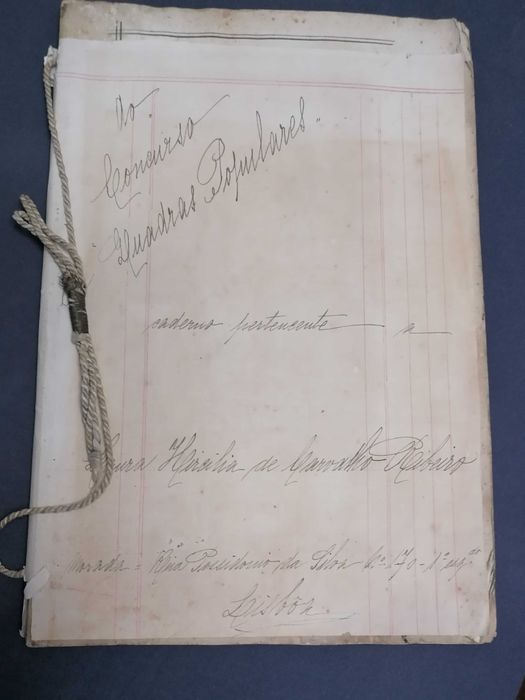 Do
Concurso
"Quadras Populares"
caderno pertencente — a —
Laura Hercilia de Carvalho Ribeiro
Morada = Rua Possidonio da Silva Nº 170 - 1º esqº
Lisboa